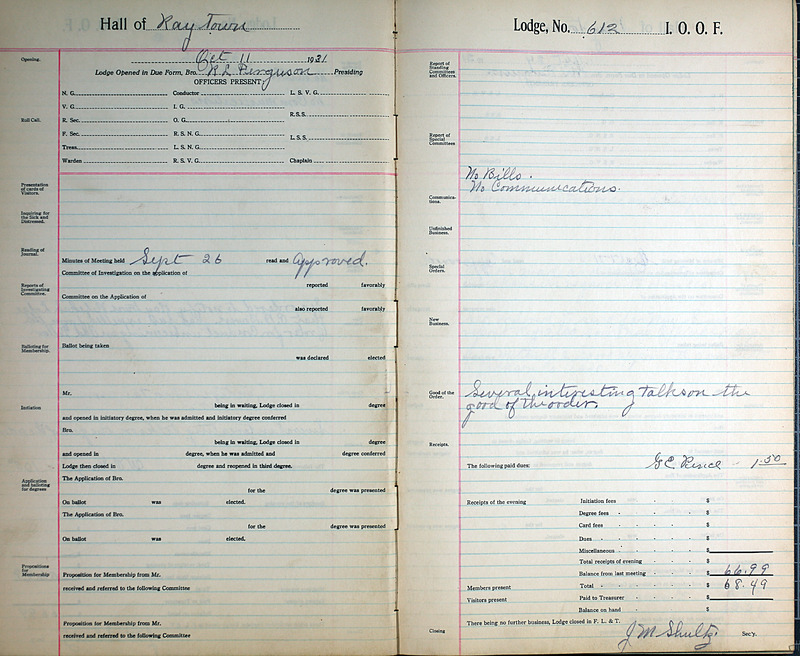 Hall of Raytown
Oct 11 1931
Opening.
Lodge Opened in Due Form, Bro. R L Ferguson Presiding
OFFICERS PRESENT:
N. G. Conductor L. S. V. G.
V. G. I. G.
R. S. S.
Roll Call.
R. Sec. O. G.
F. Sec. R. S. N. G.
L. S. S.
Treas. L. S. N. G.
Warden R. S. V. G. Chaplain
Presentation
of cards of
Visitors.
Inquiring for
the Sick and
Distressed.
Reading of
Journal.
Minutes of Meeting held Sept 26 read and approved.
Committee of Investigation on the application of
reported favorably
Reports of
Investigating
Committee.
Committee on the Application of
also reported favorably
Balloting for
Membership.
Ballot being taken
was declared elected
Mr.
Initiation
being in waiting, Lodge closed in degree
and opened in initiatory degree, when he was admitted and initiatory degree conferred
Bro.
being in waiting, Lodge closed in degree
and opened in degree, when he was admitted and degree conferred
Lodge then closed in degree and reopened in third degree.
Application
and balloting
for degrees
The Application of Bro.
for the degree was presented
On ballot was elected.
The Application of Bro.
for the degree was presented
On ballot was elected.
Propositions
for
Membership
Proposition for Membership from Mr.
received and referred to the following Committee
Proposition for Membership from Mr.
received and referred to the following Committee
Lodge, No. 612 I. O. O. F.
Report of
Standing
Committees
and Officers.
Report of
Special
Committees
No Bills.
No Communications.
Communica-
tions.
Unfinished
Business.
Special
Orders.
New
Business.
Good of the
Order.
Several interesting talks on the
good of the order.
Receipts.
The following paid dues: 1.50
Receipts of the evening Initiation fees $
Degree fees $
Card fees $
Dues $
Miscellaneous $
Total receipts of evening $
Balance from last meeting $ 66.99
Members present Total $ 68.49
Visitors present Paid to Treasurer $
Balance on hand $
There being no further business, Lodge closed in F. L. & T.
Closing
J M Shultz Sec'y.